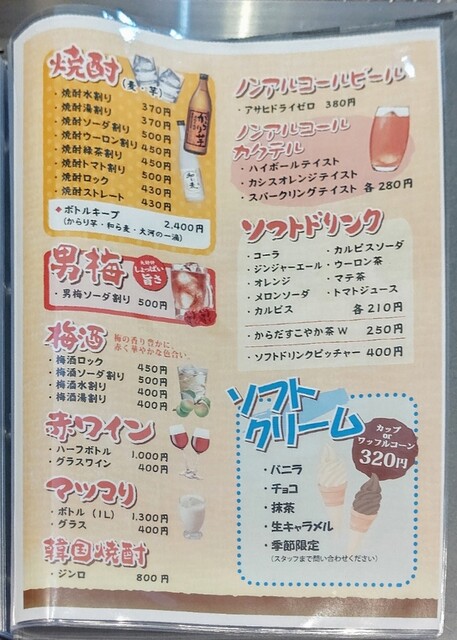 焼酎
(麦・芋)
・焼酎水割り 370円
・焼酎湯割り 370円
・焼酎ソーダ割り 500円
・焼酎ウーロン割り 450円
・焼酎緑茶割り 450円
・焼酎トマト割り 500円
・焼酎ロック 430円
・焼酎ストレート 430円
◆ボトルキープ 2,400円
(からり芋・和ら麦・大河の一滴)
からり芋
和ら麦
男梅
大好評
しょっぱい
旨さ
・男梅ソーダ割り 500円
梅酒
梅の香り豊かに、
赤く華やかな色合い。
・梅酒ロック 450円
・梅酒ソーダ割り 500円
・梅酒水割り 400円
・梅酒湯割り 400円
赤ワイン
・ハーフボトル 1,000円
・グラスワイン 400円
マッコリ
・ボトル(1L) 1,300円
・グラス 400円
韓国焼酎
・ジンロ 800円
ノンアルコールビール
・アサヒドライゼロ 380円
ノンアルコール
カクテル
・ハイボールテイスト
・カシスオレンジテイスト
・スパークリングテイスト 各280円
ソフトドリンク
・コーラ
・ジンジャーエール
・オレンジ
・メロンソーダ
・カルピス
・カルピスソーダ
・ウーロン茶
・マテ茶
・トマトジュース
各210円
・からだすこやか茶W 250円
・ソフトドリンクピッチャー 400円
ソフト
クリーム
カップ
or
ワッフルコーン
320円
・バニラ
・チョコ
・抹茶
・生キャラメル
・季節限定
(スタッフまで問い合わせください)